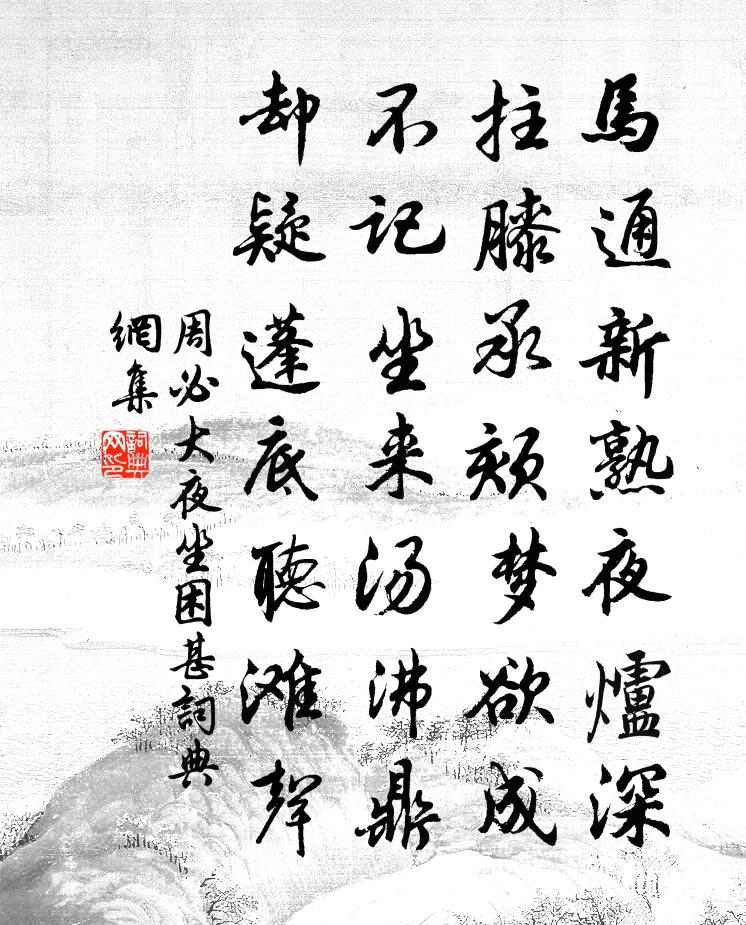 馬通新熟夜爐深
拄膝承頦梦欲成
不记坐来汤沸鼎
却疑蓬底聽滩聲
周必大夜坐困甚詞典
網集
詞典
网印